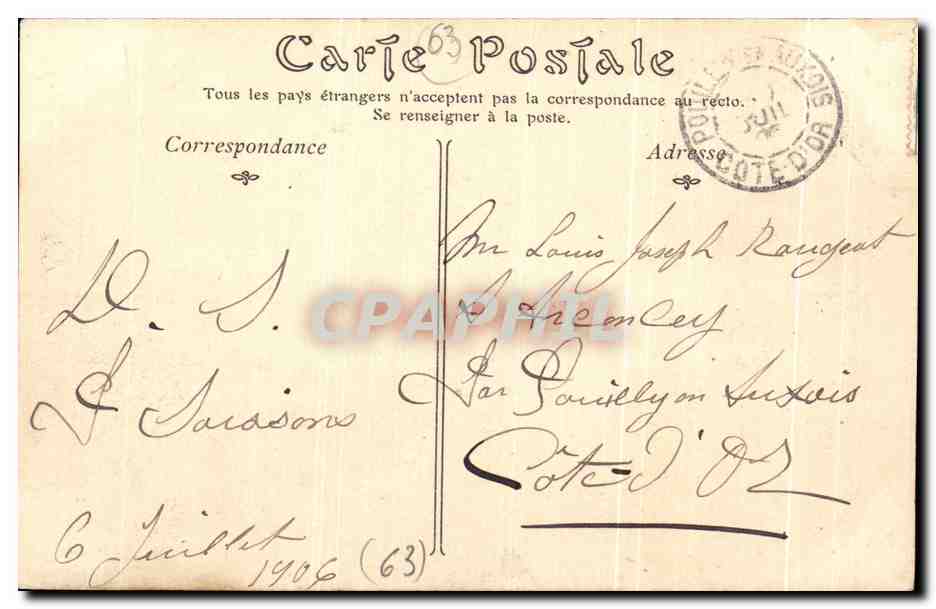 Carte Postale
63
Tous les pays étrangers n'acceptent pas la correspondance au recto.
Se renseigner à la poste.
POUILLY-EN-AUXOIS
JUIL
COTE-D'OR
Correspondance
Adresse
D. S.
Soissons
6 Juillet
1906
(63)
Mr Louis Joseph Rougeot
A Arconcey
Par Pouillyon Auxois
Côte-d'OR
CPAPHIL